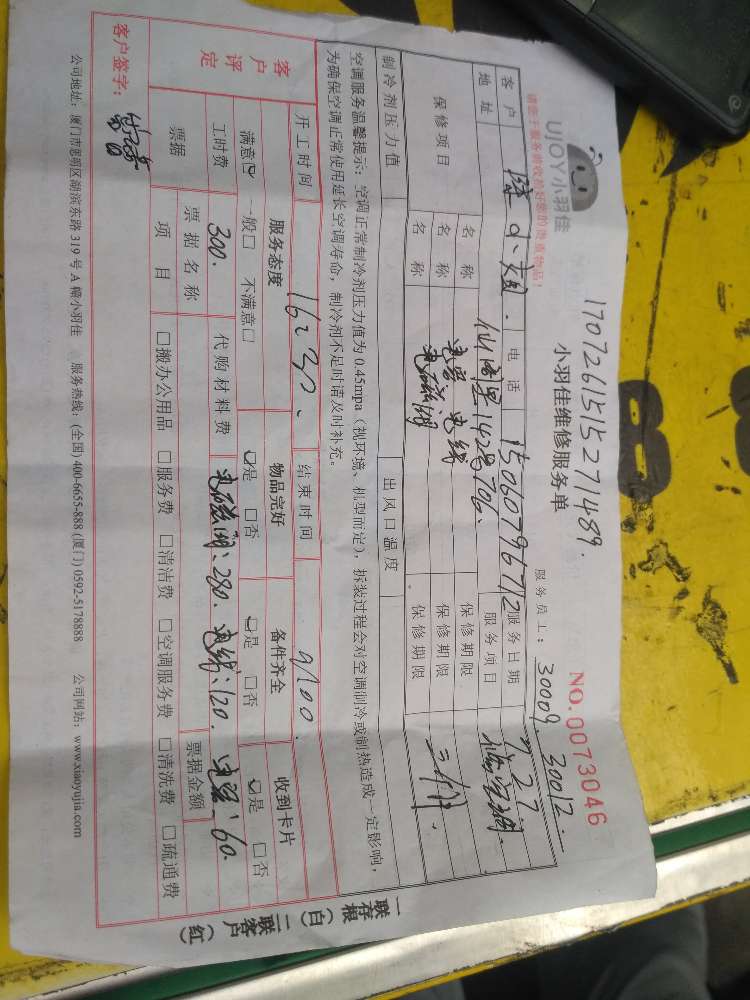 170726151527148​9.
UJOY小羽佳
小羽佳维修服务单
NO.0073046
请您于服务前收拾好您的贵重物品！
服务员工：30009. 30012.
客户
电话 15060796712
服务日期 7.27
地址
142号706.
服务项目
保修项目
名称
保修期限
名称 电容 电线
保修期限
名称 电磁阀
保修期限 三个月.
制冷剂压力值
出风口温度
空调服务温馨提示：空调正常制冷剂压力值为0.45mpa（视环境、机型而定），拆装过程会对空调制冷或制热造成一定影响，
为确保空调正常使用延长空调寿命，制冷剂不足时请及时补充。
开工时间 16:30、
结束时间
客户评定
服务态度 物品完好 备件齐全 收到卡片
满意☑ 一般□ 不满意□ ☑是 □否 ☑是 □否 ☑是 □否
工时费 300. 代购材料费 电磁阀：280. 电线：120. 电容：60.
票据 票据名称 票据金额
项目 □搬办公用品 □服务费 □清洁费 □空调服务费 □清洗费 □疏通费
客户签字：
公司地址：厦门市思明区湖滨东路319号A幢小羽佳 服务热线：(全国) 400-6655-888 (厦门) 0592-5178888 公司网站：www.xiaoyujia.com
一联存根（白）二联客户（红）